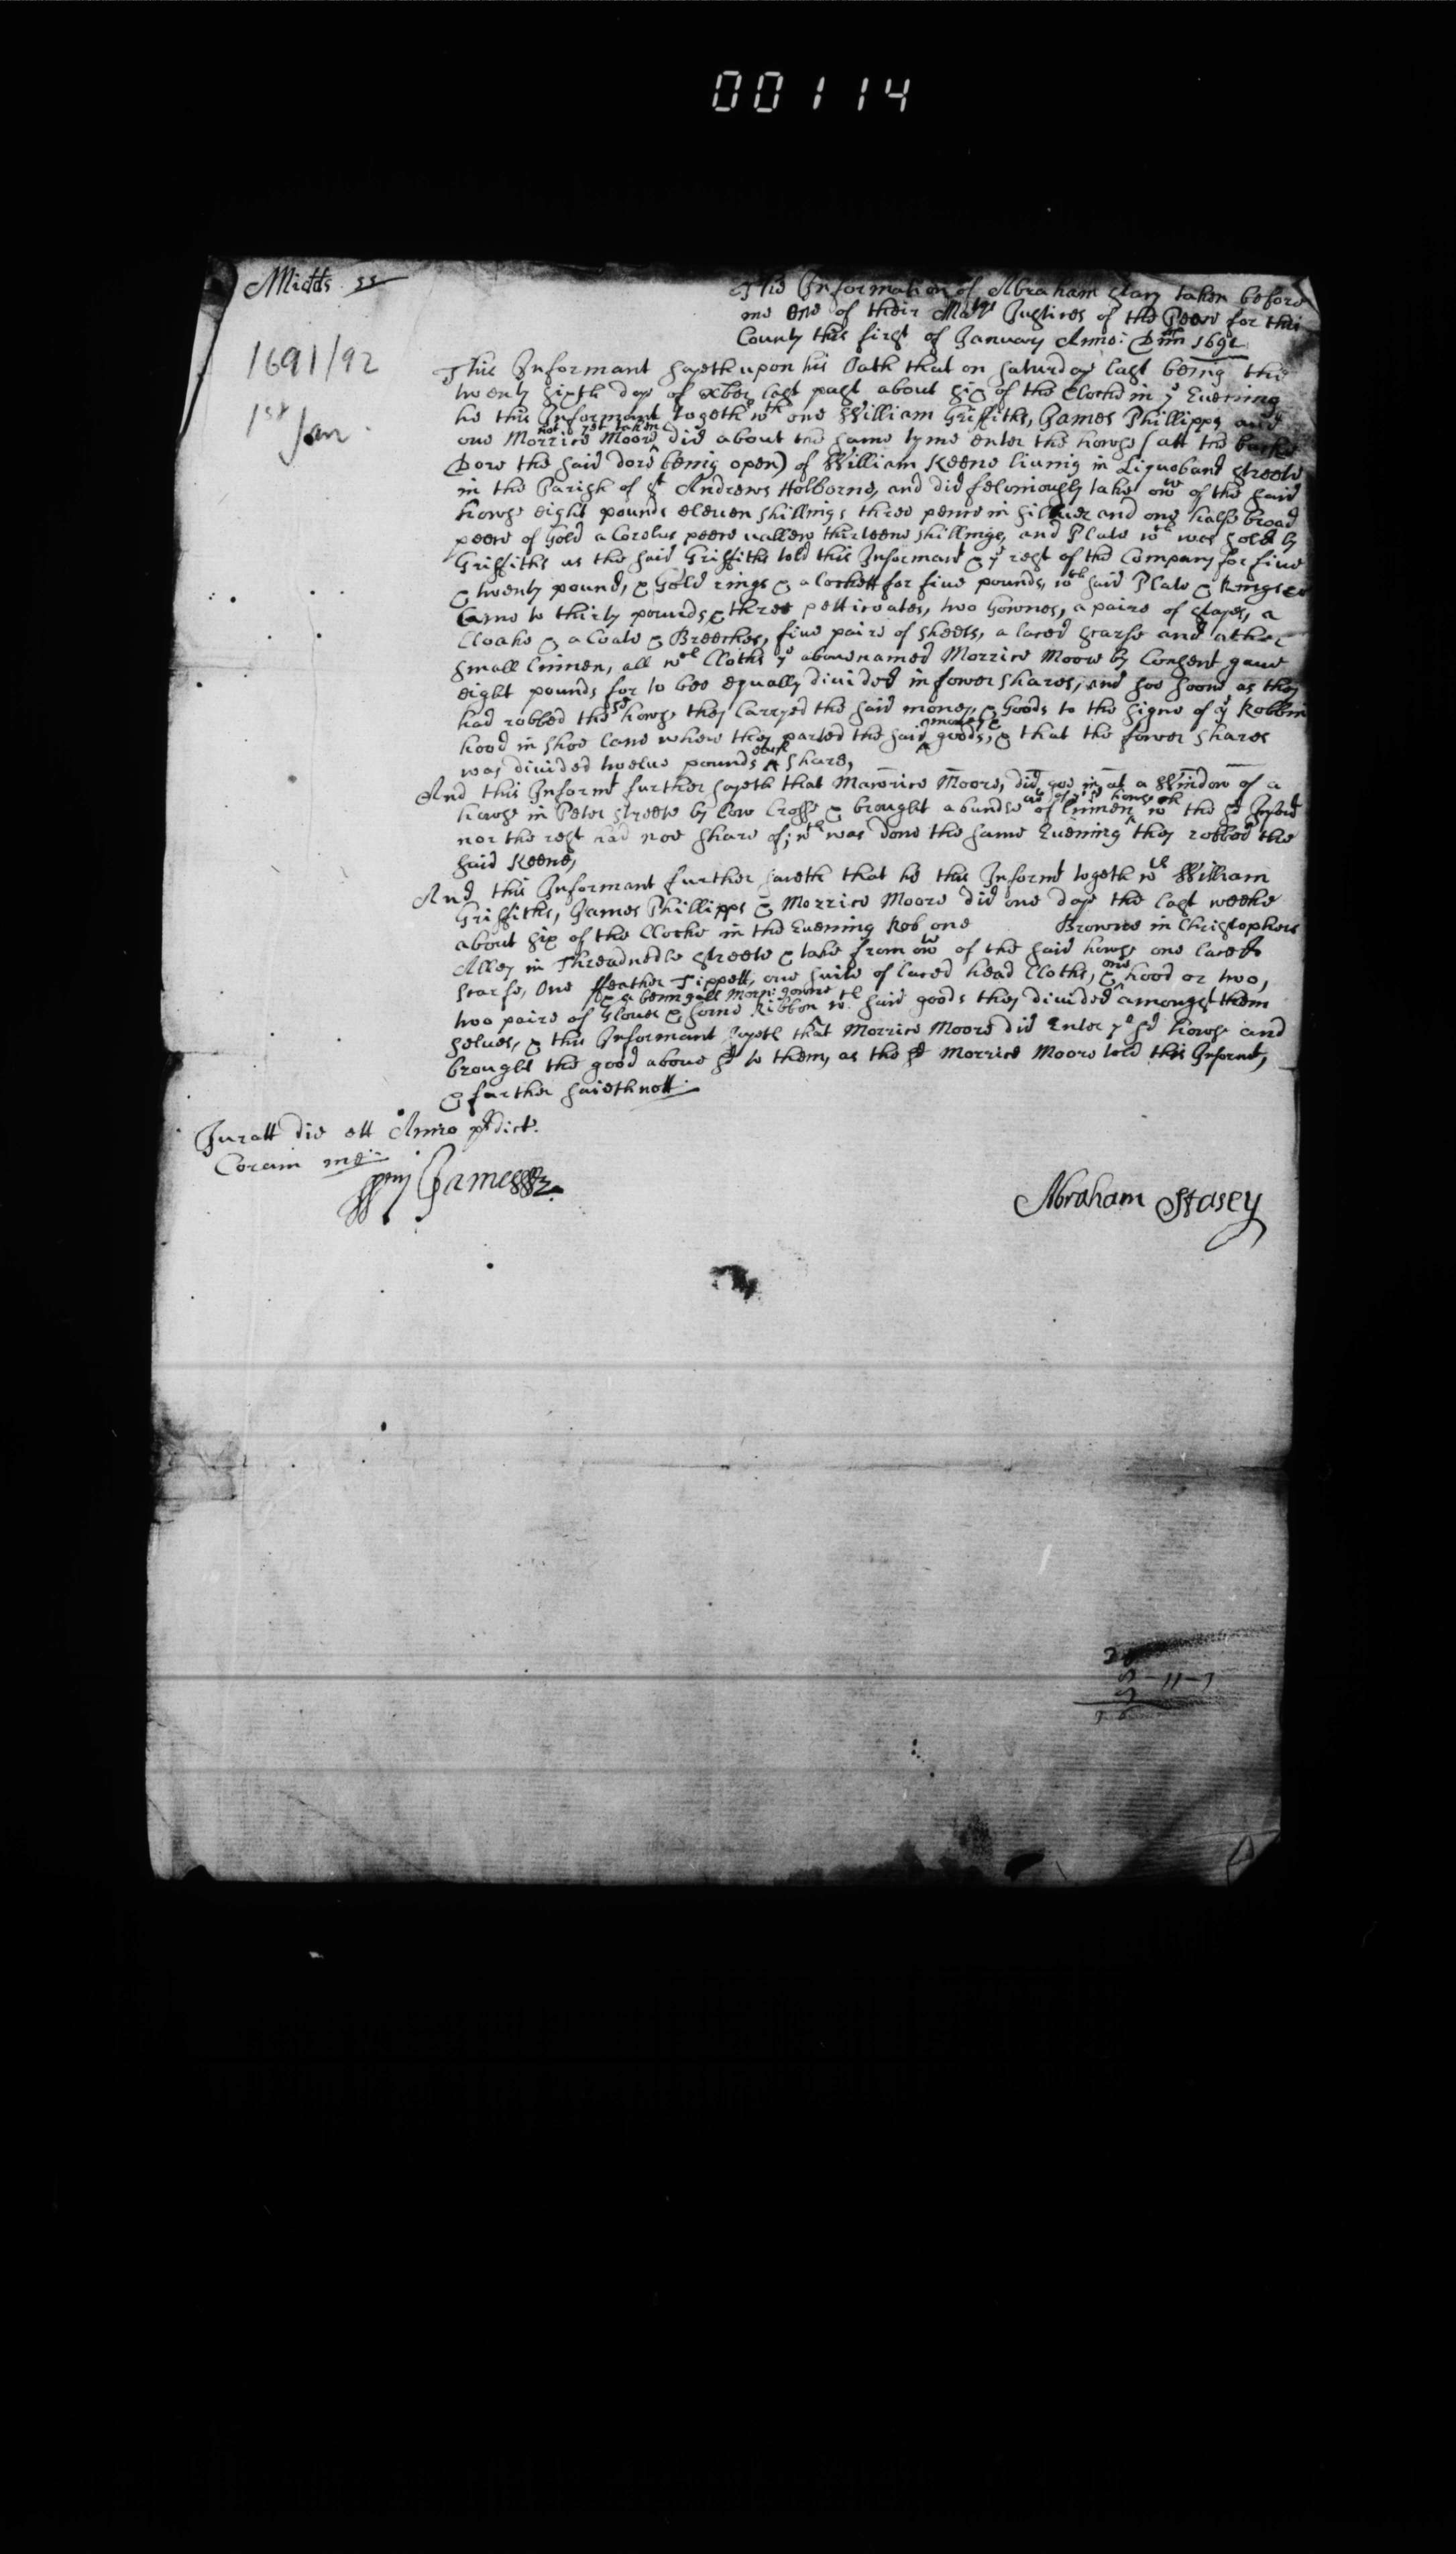 00114
Midds ss
The Information of Abraham Stasy taken before
me one of their Matys Justices of the Peace for this
County this first of January Anno: Dni 1691
1691/92
1st Jan.
This Informant sayeth upon his Oath that on saturday last being the
twenty sixth day of xber last past about six of the Clocke in ye Evening
he this Informant togethr wth one William Griffiths, James Phillipps and
one Morrice Moore not yet taken did about the same tyme enter the howse (att the backe
Dore the said dore being open) of William Keene living in Liquobane streete
in the Parish of St Andrews Holborne, and did feloniously take out of the said
howse eight pounds eleven shillings three pence in sillver and one halfe broad
peece of Gold a Corolus peece vallew thirteene shillings, and Plate wch was sold by
Griffiths as the said Griffiths told this Informant & ye rest of the Company for five
& twenty pound, & Gold rings & a lockett for five pounds, wch said Plate & Rings
Came to thirty pounds, & three petticoates, two Gownes, a paire of stayes, a
Cloake & a Coate & Breeches, five paire of sheets, a laced scarfe and other
small linnen, all wch Cloths ye abovenamed Morrice Moore by Consent gave
eight pounds for to bee equally divided in fower shares, and soe soone as they
had robbed the sd howse they Carryed the said money, & Goods to the signe of ye Robbin
hood in shoe lane where they parted the said money & goods, & that the fower shares
was divided twelve pounds each share,
And this Informt further sayeth that Maurice Moore, did goe in at a Window of a
howse in Peter streete by Cow Crosse & brought a bundle of linnen out of ye sd howse wch the sd Informt
nor the rest had noe share of; wch was done the same Evening they robbed the
said Keene,
And this Informant further saieth that he this Informt togethr wth William
Griffiths, James Phillipps & Morrice Moore did one day the last weeke
about six of the Clocke in the Evening Rob one Browne in Christophers
Alley in Threadnedle streete & take from out of the said howse one laced
scarfe, One ffeather Tippett, one suite of laced head Cloths, & one hood or two,
two paire of Gloves & some Ribbon & a benngall Morn: gowne wch said goods they divided amongst them
selves, & this Informant sayeth that Morrice Moore did Enter ye sd howse and
brought the good above sd to them, as the sd Morrice Moore told this Informt,
& further saieth nott
Juratt die ett Anno prdict.
Coram me
James
Abraham Stasey